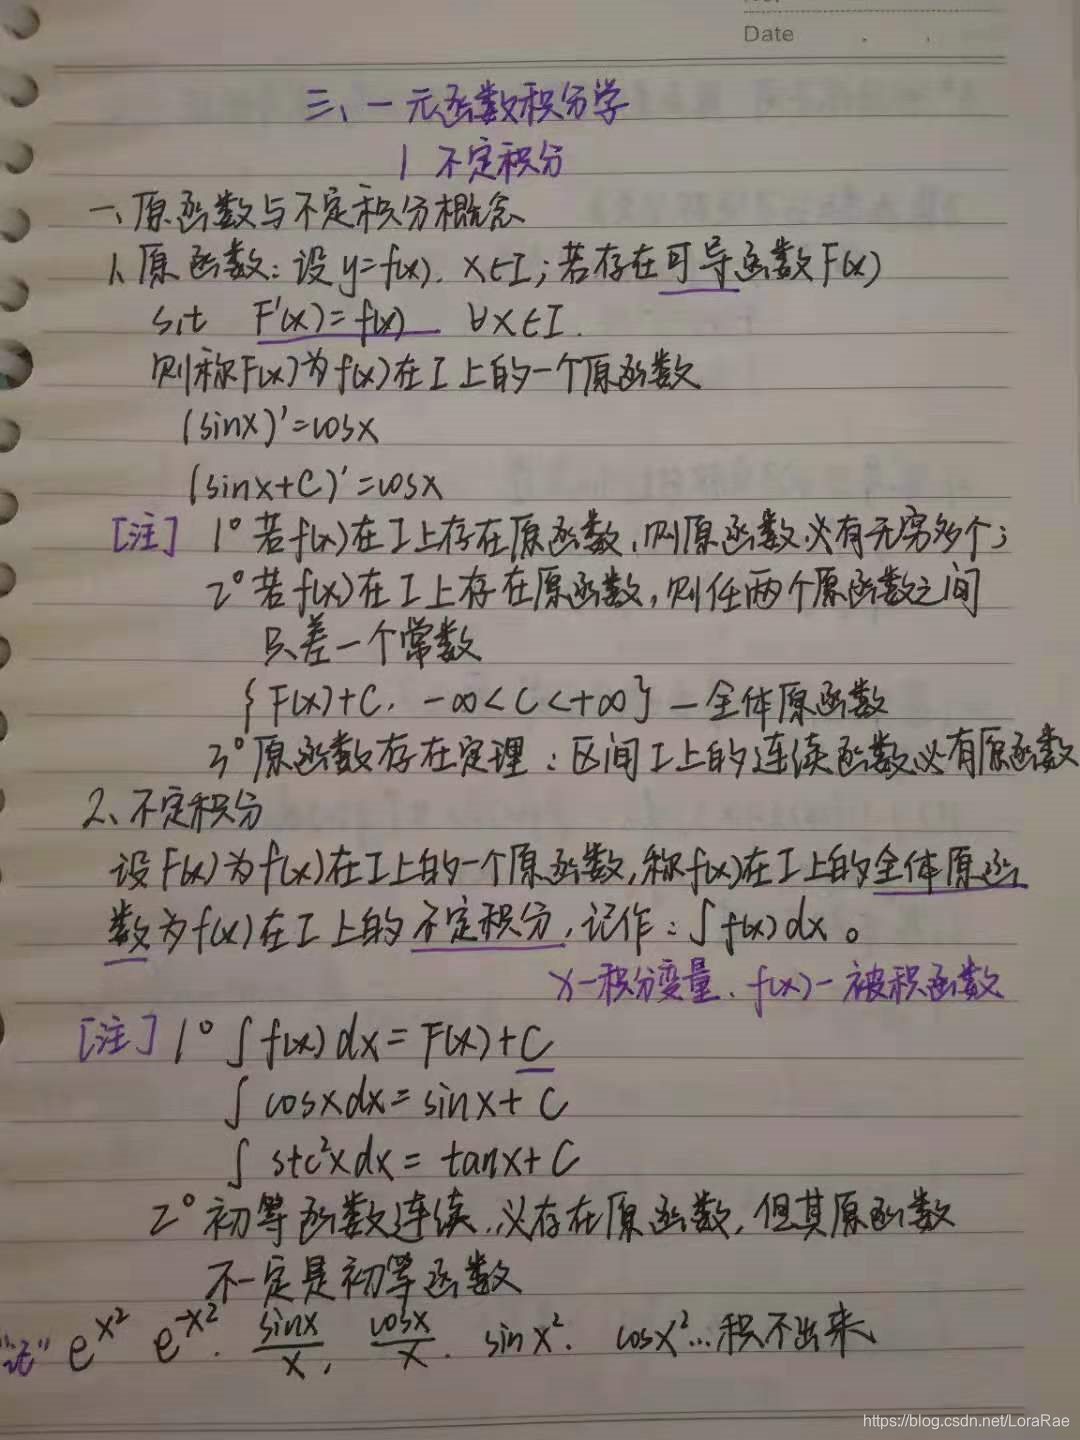 Date
三、一元函数积分学
1 不定积分
一、原函数与不定积分概念
1、原函数：设y=f(x)，x∈I；若存在可导函数F(x)
s.t F'(x)=f(x) ∀x∈I.
则称F(x)为f(x)在I上的一个原函数
(sinx)'=cosx
(sinx+C)'=cosx
[注] 1° 若f(x)在I上存在原函数，则原函数必有无穷多个；
2° 若f(x)在I上存在原函数，则任两个原函数之间
只差一个常数
{F(x)+C，-∞<C<+∞}—全体原函数
3° 原函数存在定理：区间I上的连续函数必有原函数
2、不定积分
设F(x)为f(x)在I上的一个原函数，称f(x)在I上的全体原函
数为f(x)在I上的不定积分，记作：∫f(x)dx。
x—积分变量、f(x)—被积函数
[注] 1° ∫f(x)dx=F(x)+C
∫cosxdx=sinx+C
∫sec²xdx=tanx+C
2° 初等函数连续，必存在原函数，但其原函数
不一定是初等函数
"记" e^x² e^-x². sinx/x, cosx/x. sinx². cosx²...积不出来
https://blog.csdn.net/LoraRae